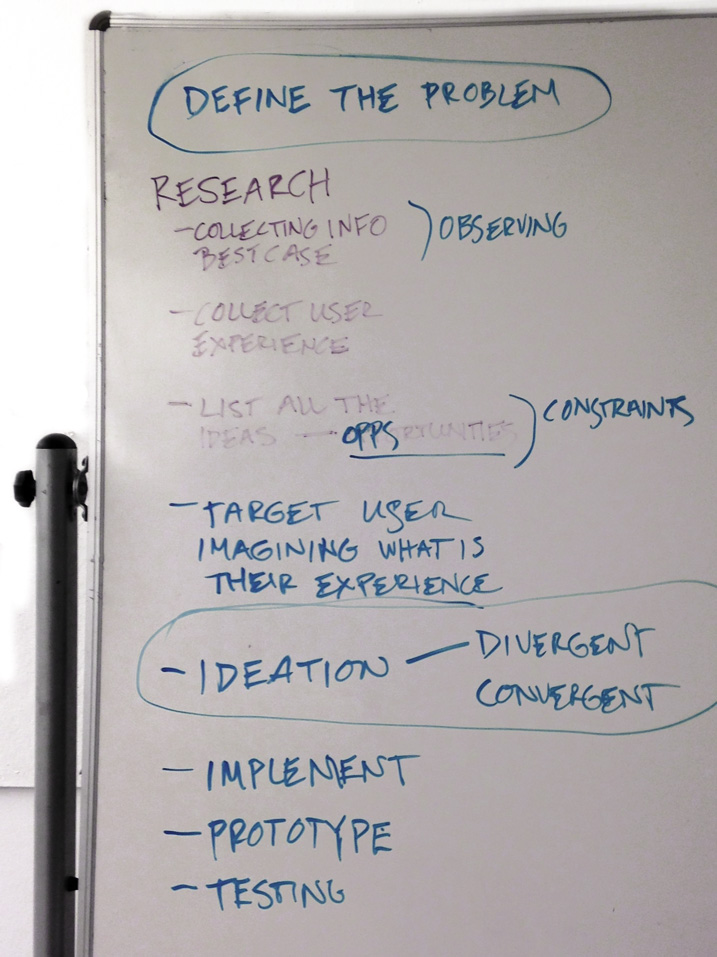 DEFINE THE PROBLEM
RESEARCH
- COLLECTING INFO
BEST CASE
OBSERVING
- COLLECT USER
EXPERIENCE
- LIST ALL THE
IDEAS — OPPSRTUNITIES
CONSTRAINTS
- TARGET USER
IMAGINING WHAT IS
THEIR EXPERIENCE
- IDEATION — DIVERGENT
CONVERGENT
- IMPLEMENT
- PROTOTYPE
- TESTING